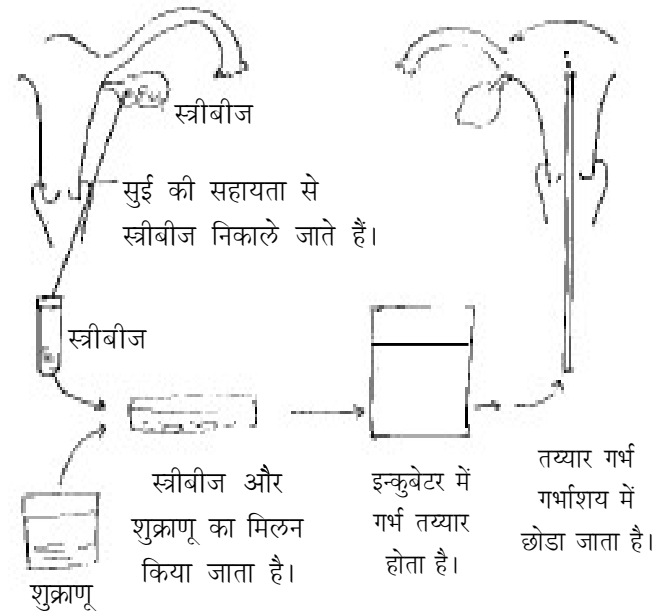 स्त्रीबीज
सुई की सहायता से
स्त्रीबीज निकाले जाते हैं।
स्त्रीबीज
शुक्राणू
स्त्रीबीज और
शुक्राणू का मिलन
किया जाता है।
इन्कुबेटर में
गर्भ तय्यार
होता है।
तय्यार गर्भ
गर्भाशय में
छोडा जाता है।